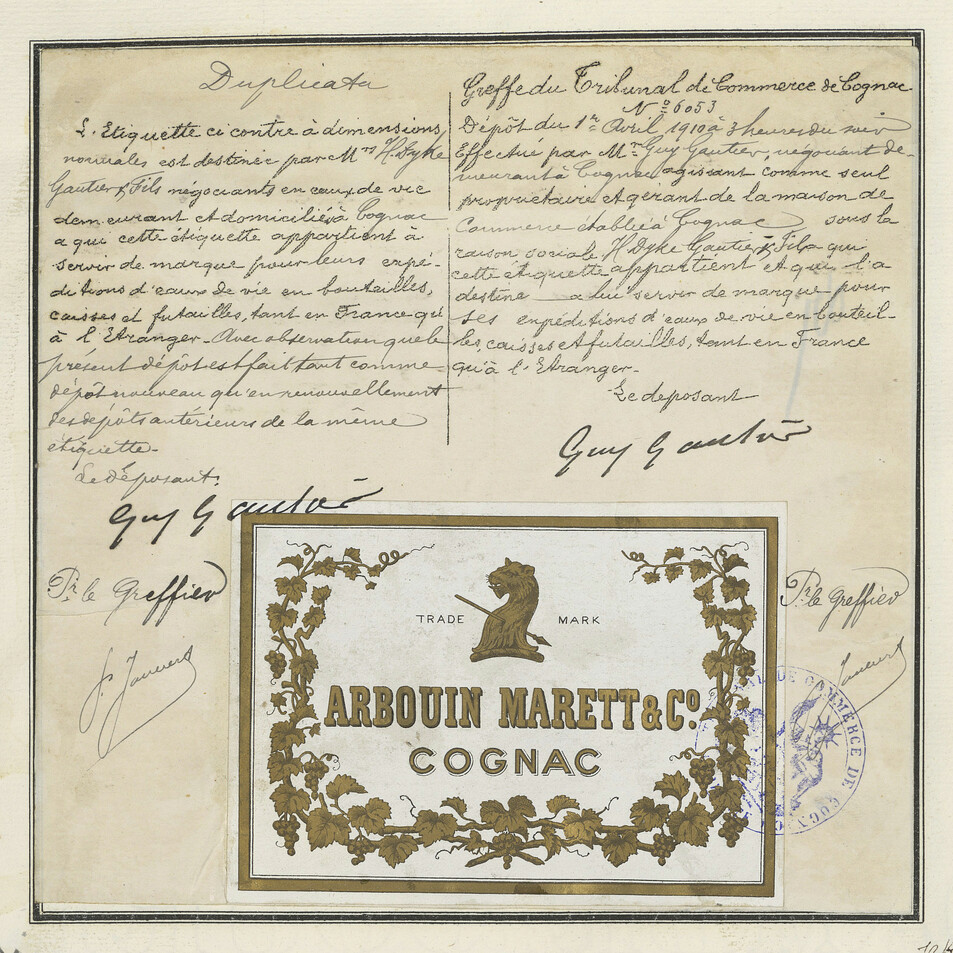 Duplicata
L'Etiquette ci contre à dimensions
normales est destinée par Mrs H. Dyke
Gautier & Fils négociants en eaux de vie
demeurant et domiciliés à Cognac
a qui cette étiquette appartient à
servir de marque pour leurs expé-
ditions d'eaux de vie en bouteilles,
caisses et futailles, tant en France qu'
à l'Etranger. Avec observation que le
présent dépôt est fait tant comme
dépôt nouveau qu'en renouvellement
des dépôts antérieurs de la même
étiquette.
Le Déposant.
Guy Gautier
Pr. le Greffier
Greffe du Tribunal de Commerce de Cognac
No 6053
Dépôt du 1er Avril 1910 à 3 heures du soir
Effectué par Mr. Guy Gautier, négociant de-
meurant à Cognac agissant comme seul
propriétaire et gérant de la maison de
Commerce établie à Cognac sous la
raison sociale H. Dyke Gautier & Fils a qui
cette étiquette appartient et qui l'a
destine a lui servir de marque pour
ses expéditions d'eaux de vie en bouteil-
les, caisses et futailles, tant en France
qu'à l'Etranger.
Le deposant
Guy Gautier
Pr le Greffier
TRADE MARK
ARBOUIN MARETT & Co.
COGNAC
DE COMMERCE DE COGN